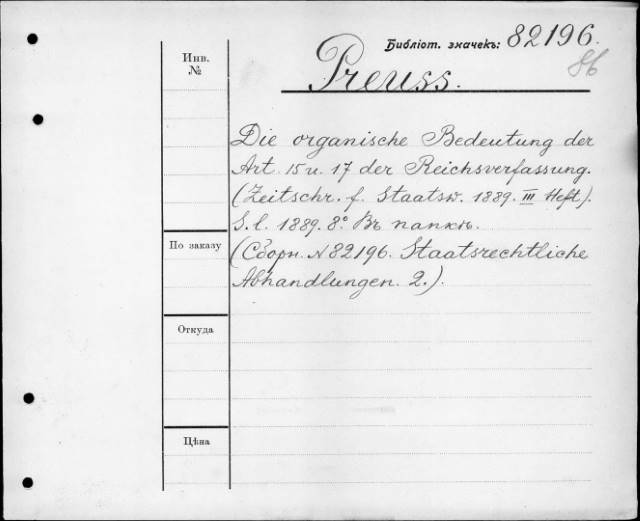 Библіот. значекъ: 82196.
86
Инв.
№
Preuss.
Die organische Bedeutung der
Art. 15 u. 17 der Reichsverfassung.
(Zeitschr. f. Staatsw. 1889. III Heft).
S. l. 1889. 8°. Въ папкѣ.
(Сборн. N 82196. Staatsrechtliche
Abhandlungen. 2.).
По заказу
Откуда
Цѣна